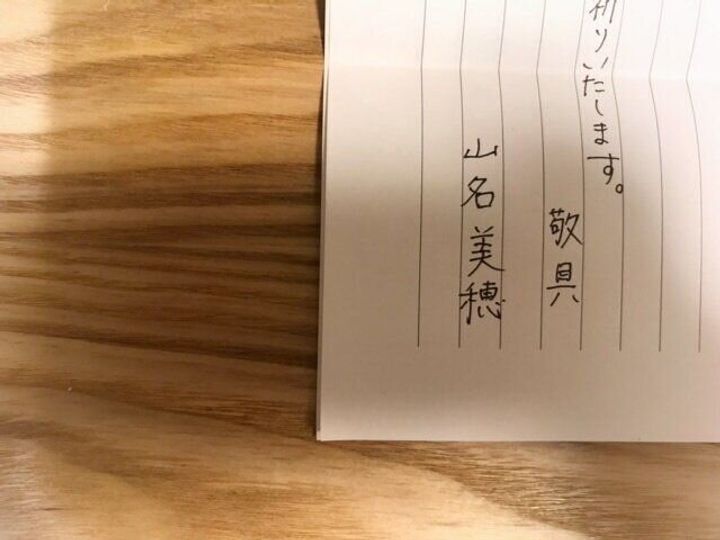 祈りいたします。
敬具
山名美穂